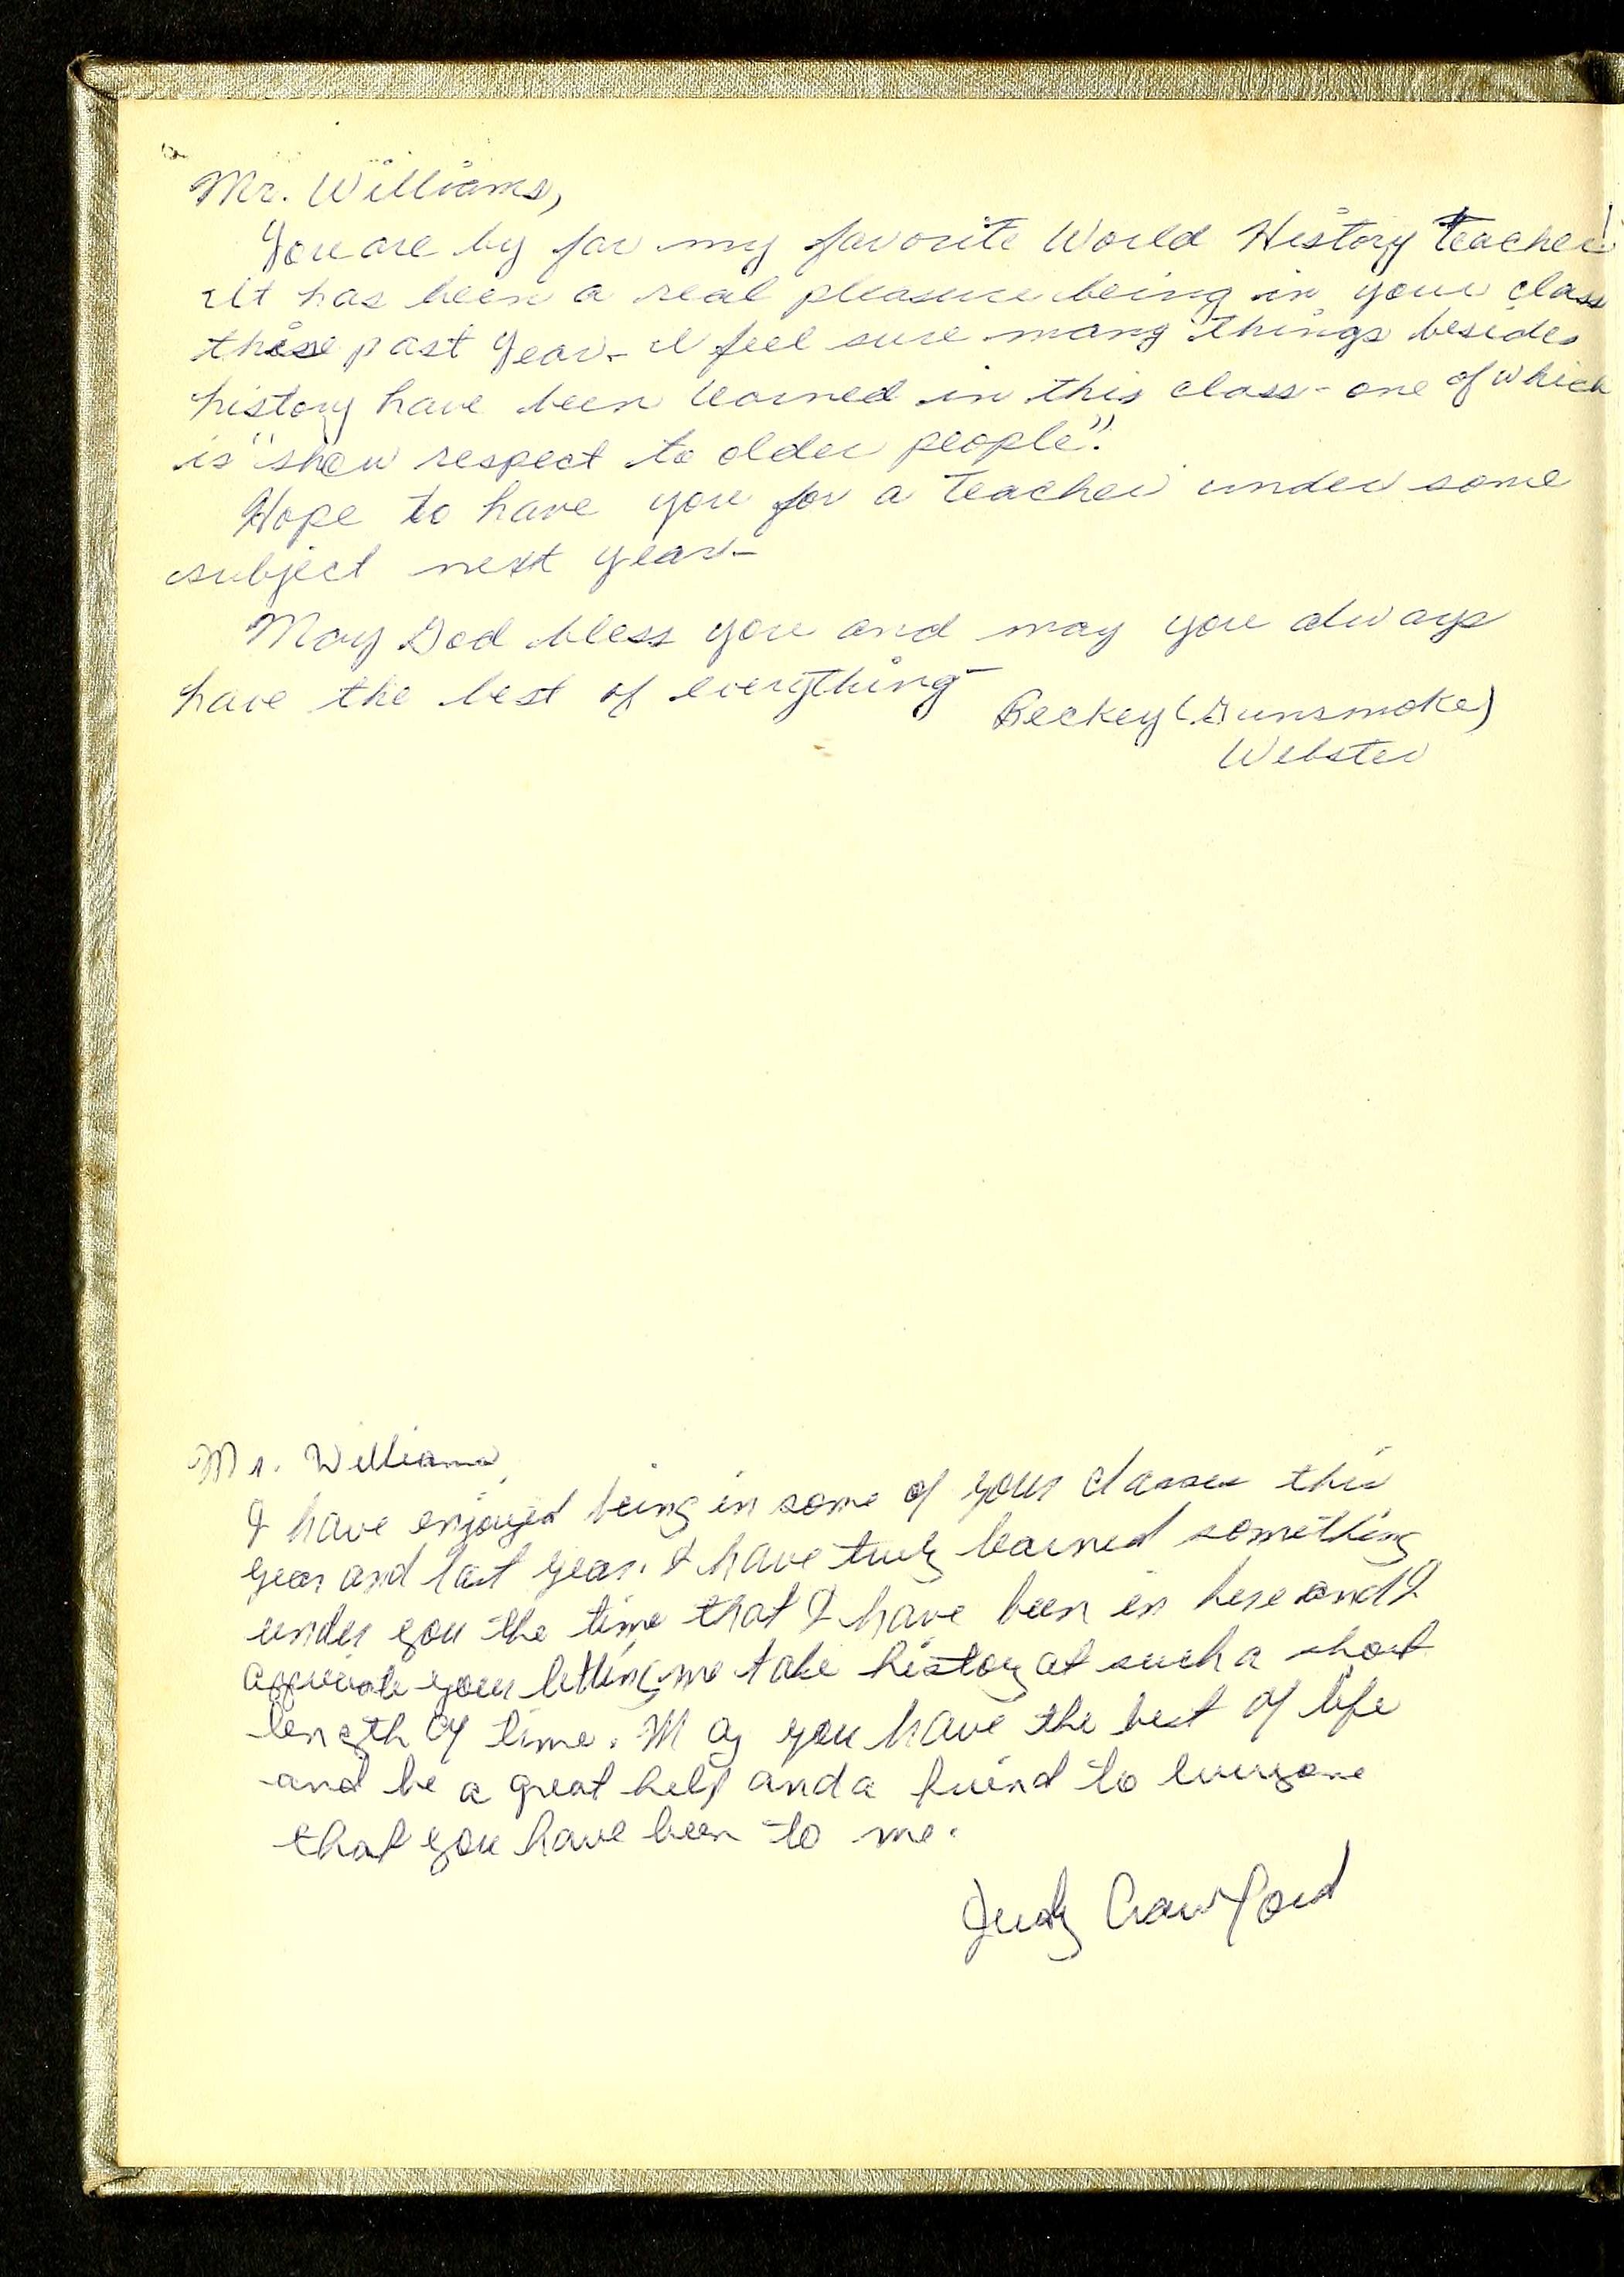 Mr. Williams,
You are by far my favorite World History teacher!
It has been a real pleasure being in your class
these past year- I feel sure many things besides
history have been learned in this class- one of which
is "show respect to older people".
Hope to have you for a teacher under some
subject next year-
May God bless you and may you always
have the best of everything-
Beckey (Gunsmoke)
Webster
Mr. Williams,
I have enjoyed being in some of your classes this
year and last year. I have truly learned something
under you the time that I have been in here and I
your letting me take history at such a short
length of time. May you have the best of life
and be a great help and a friend to everyone
that you have been to me.
Judy Crawford